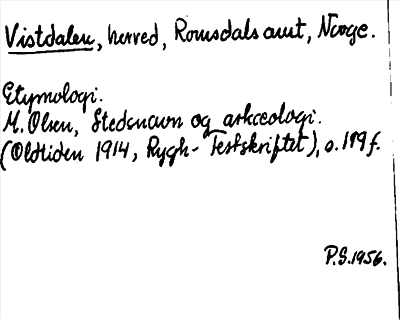 Vistdalen, herred, Romsdals amt, Norge.
Etymologi.
M. Olsen, Stedsnavn og arkæologi.
(Oldtiden 1914, Rygh-Festskriftet), s. 119 f.
P.S. 1956.